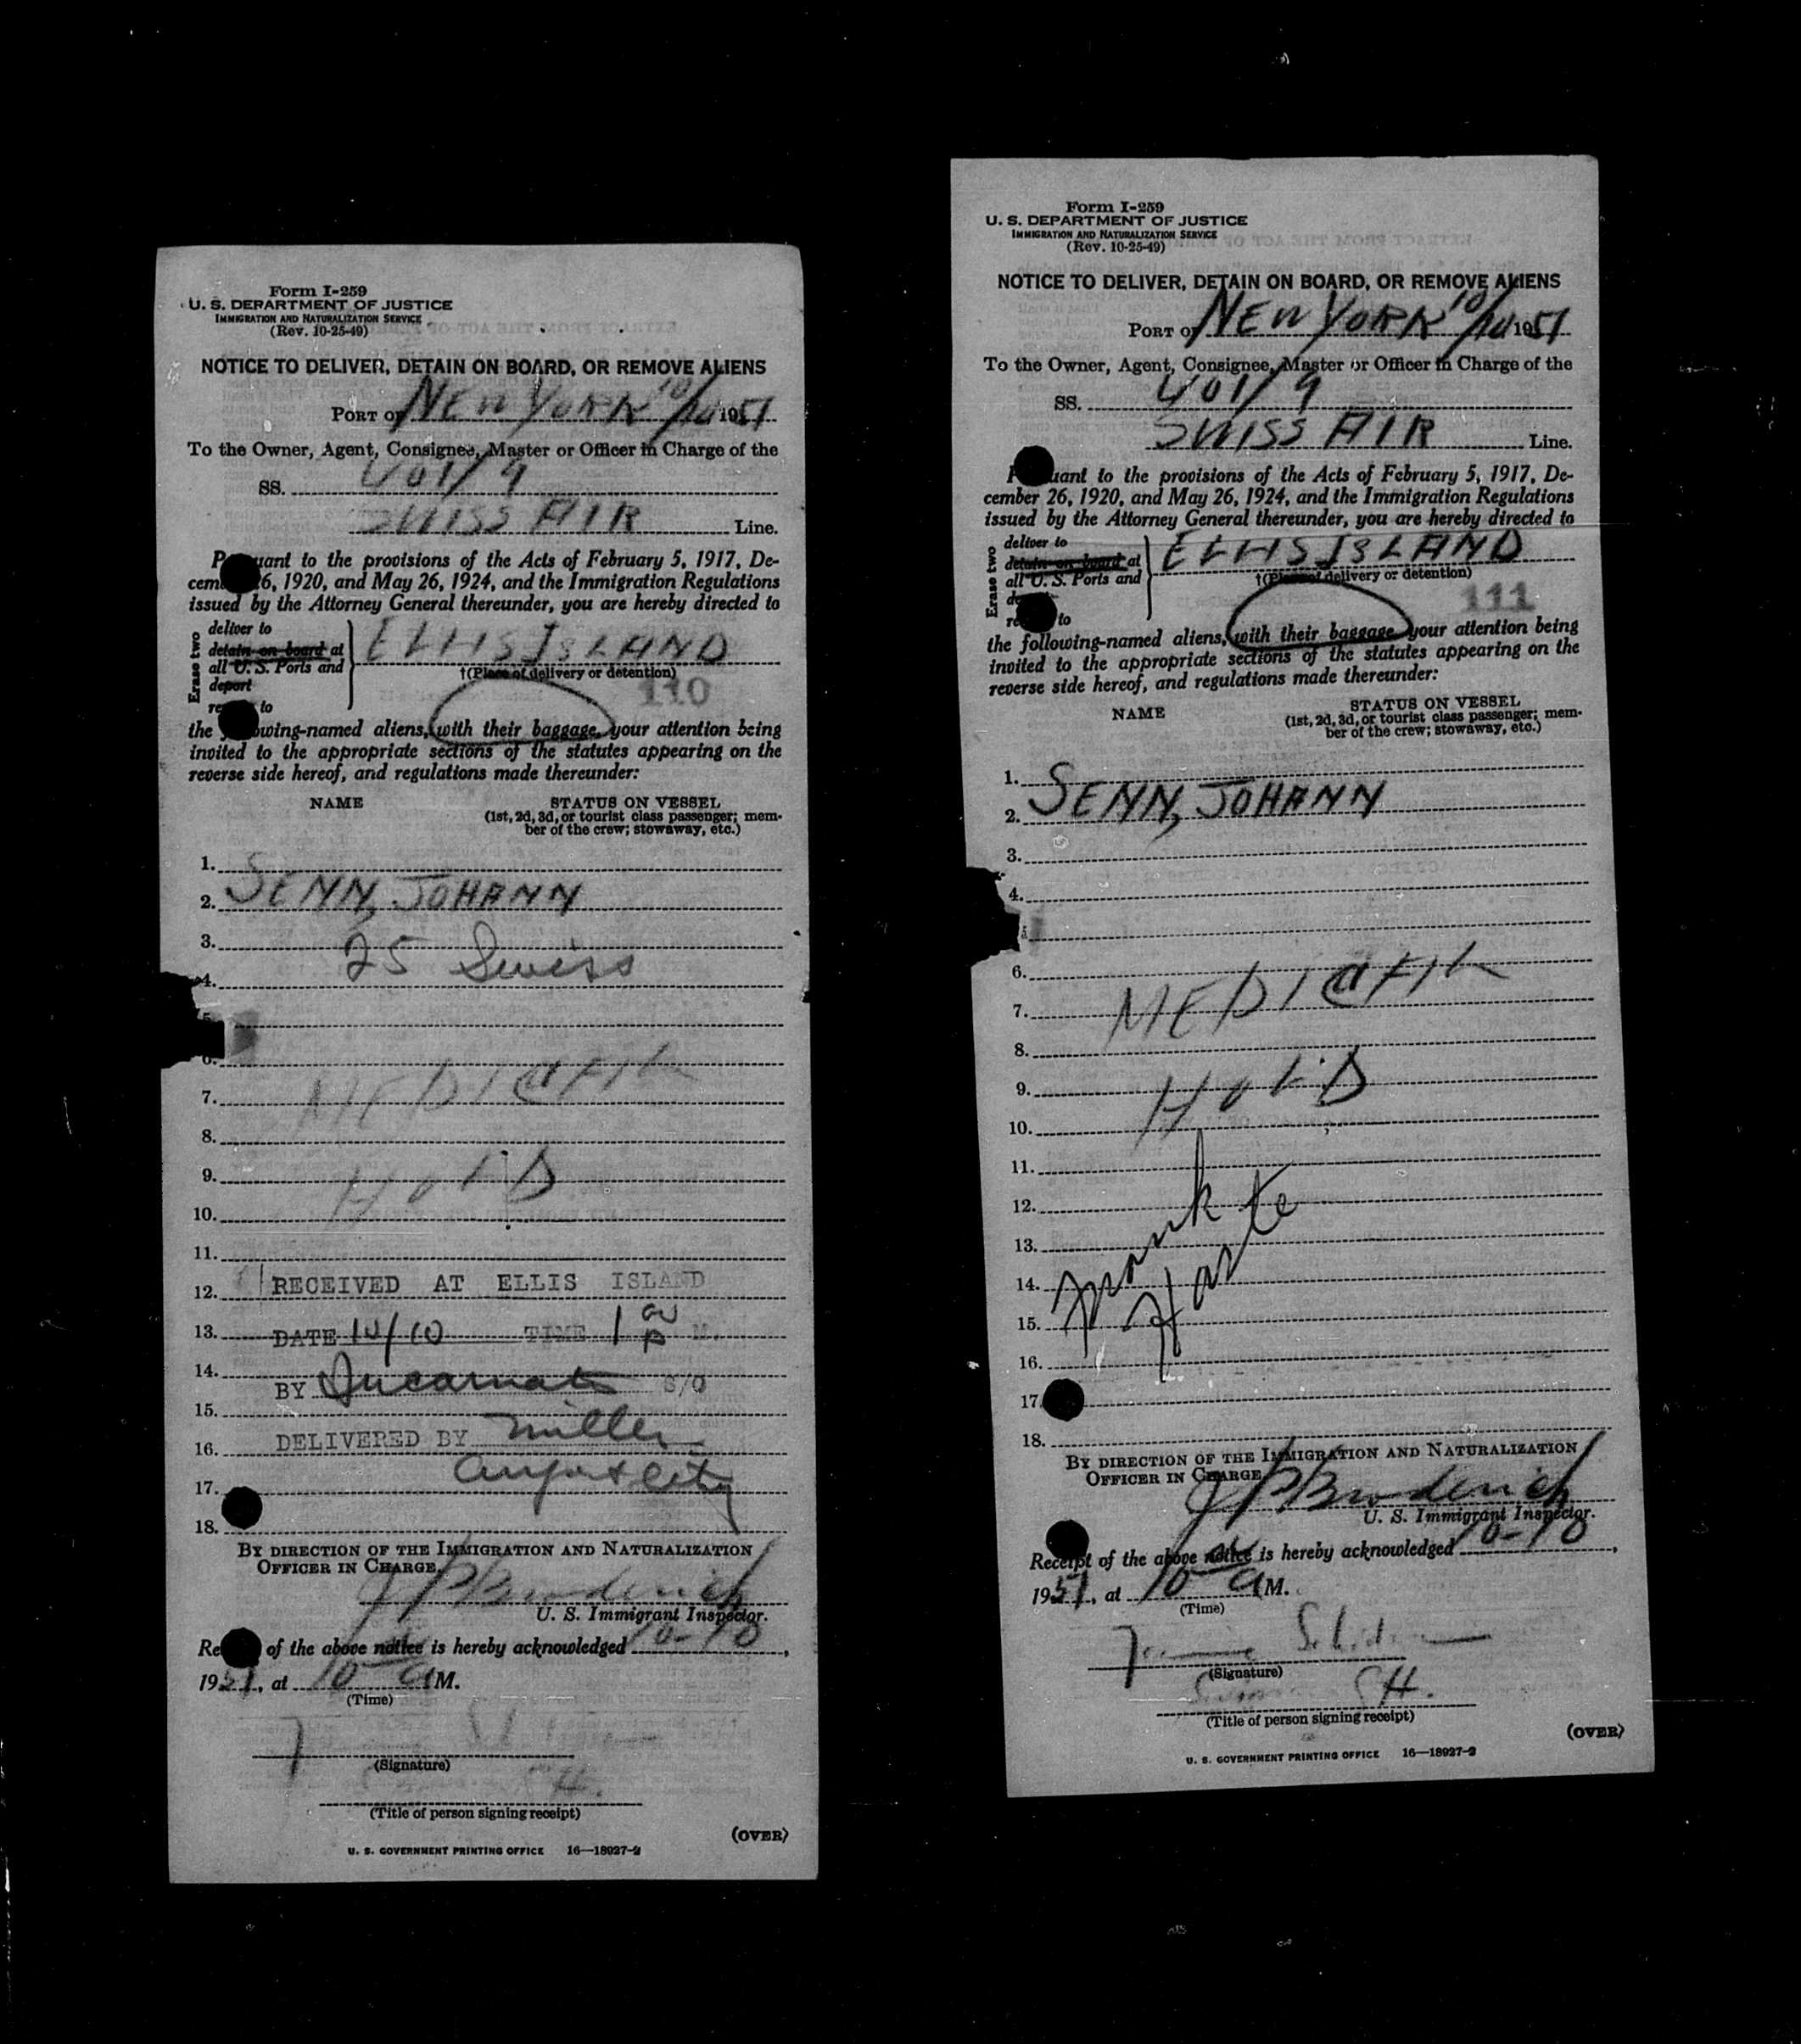 Form I-259
U. S. DEPARTMENT OF JUSTICE
IMMIGRATION AND NATURALIZATION SERVICE
(Rev. 10-25-49)
NOTICE TO DELIVER, DETAIN ON BOARD, OR REMOVE ALIENS
PORT OF NEW YORK 10/10 1951
To the Owner, Agent, Consignee, Master or Officer in Charge of the
SS.
SWISS AIR Line.
to the provisions of the Acts of February 5, 1917, De-
26, 1920, and May 26, 1924, and the Immigration Regulations
issued by the Attorney General thereunder, you are hereby directed to
Erase two
deliver to
detain on board at
all U. S. Ports and
deport
to
ELLIS ISLAND
†(Place of delivery or detention)
110
the following-named aliens, with their baggage, your attention being
invited to the appropriate sections of the statutes appearing on the
reverse side hereof, and regulations made thereunder:
NAME
STATUS ON VESSEL
(1st, 2d, 3d, or tourist class passenger; mem-
ber of the crew; stowaway, etc.)
1.
2. SENN, JOHANN
3. 25 Swiss
4.
7. MEDICAL
8.
9. HOLD
10.
11.
12. RECEIVED AT ELLIS ISLAND
13. DATE 10/10 TIME 1 P M.
14.
BY S/O
15.
16. DELIVERED BY Miller
17.
18.
BY DIRECTION OF THE IMMIGRATION AND NATURALIZATION
OFFICER IN CHARGE
J P Broderick
U. S. Immigrant Inspector.
of the above notice is hereby acknowledged 10-10,
1951, at 10 A M.
(Time)
(Signature)
(Title of person signing receipt)
(OVER)
U. S. GOVERNMENT PRINTING OFFICE 16—18927-2
Form I-259
U. S. DEPARTMENT OF JUSTICE
IMMIGRATION AND NATURALIZATION SERVICE
(Rev. 10-25-49)
NOTICE TO DELIVER, DETAIN ON BOARD, OR REMOVE ALIENS
PORT OF NEW YORK 10/10 1951
To the Owner, Agent, Consignee, Master or Officer in Charge of the
SS.
SWISS AIR Line.
to the provisions of the Acts of February 5, 1917, De-
cember 26, 1920, and May 26, 1924, and the Immigration Regulations
issued by the Attorney General thereunder, you are hereby directed to
Erase two
deliver to
detain on board at
all U. S. Ports and
to
ELLIS ISLAND
†(Place of delivery or detention)
111
the following-named aliens, with their baggage, your attention being
invited to the appropriate sections of the statutes appearing on the
reverse side hereof, and regulations made thereunder:
NAME
STATUS ON VESSEL
(1st, 2d, 3d, or tourist class passenger; mem-
ber of the crew; stowaway, etc.)
1.
2. SENN, JOHANN
3.
4.
6.
7. MEDICAL
8.
9. HOLD
10.
11.
12.
13.
14. Frank
15. Harte
16.
17.
18.
BY DIRECTION OF THE IMMIGRATION AND NATURALIZATION
OFFICER IN CHARGE
J P Broderick
U. S. Immigrant Inspector.
Receipt of the above notice is hereby acknowledged 10-10,
1951, at 10 A M.
(Time)
(Signature)
(Title of person signing receipt)
(OVER)
U. S. GOVERNMENT PRINTING OFFICE 16—18927-2